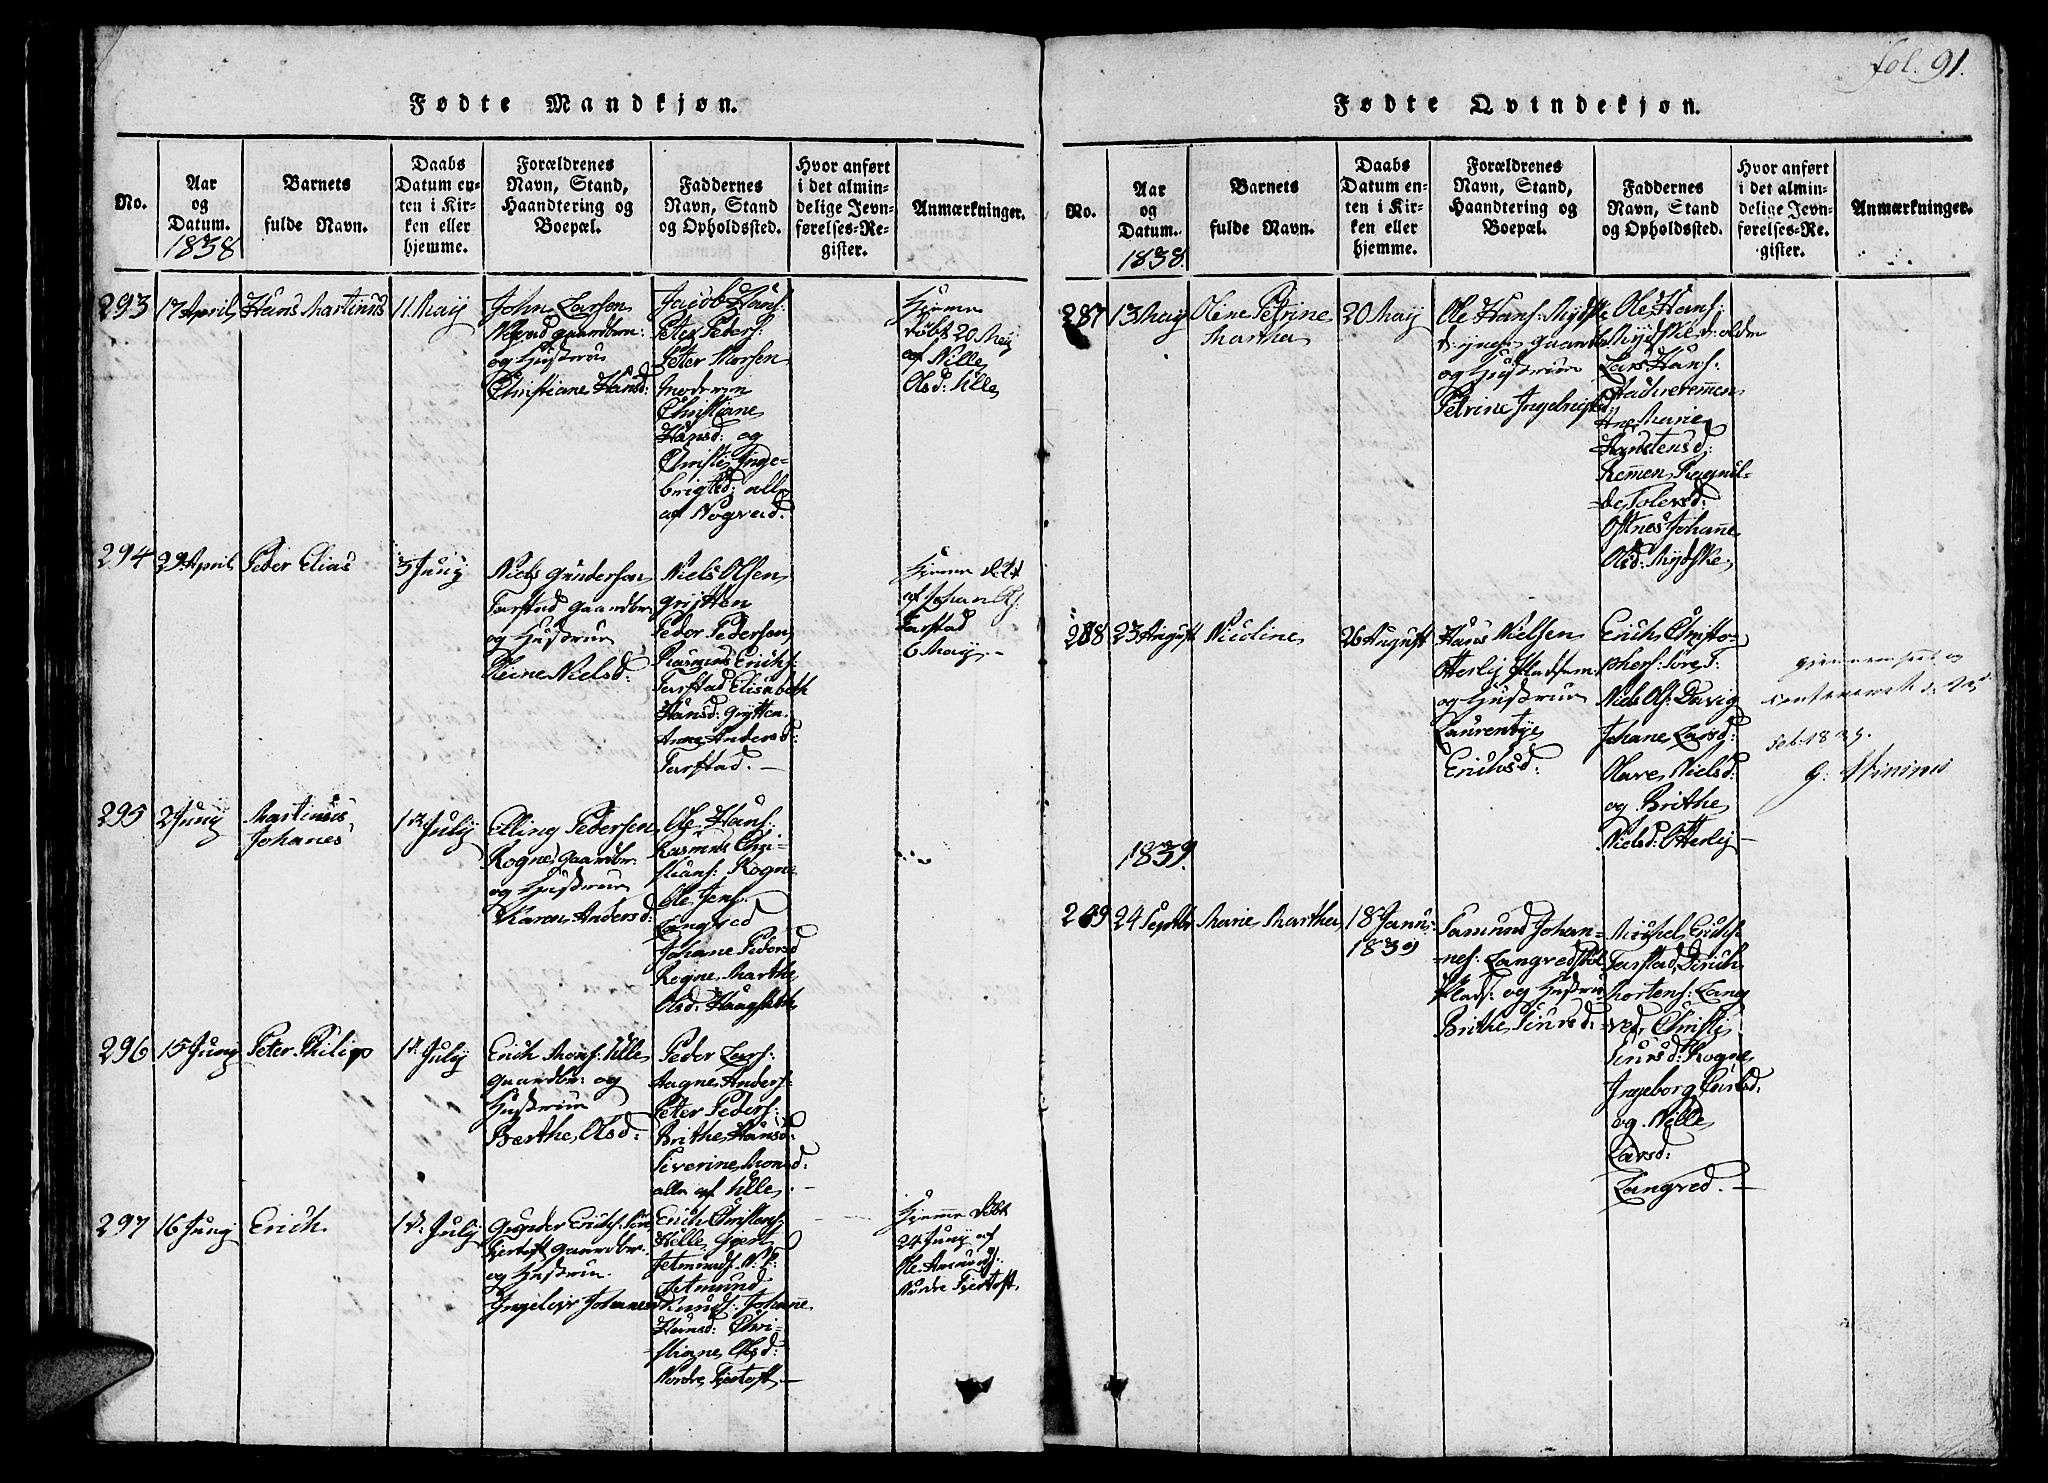 fol. 91.
Fødte Mandkjøn.
No.
Aar
og
Datum.
1838
Barnets
fulde Navn.
Daabs
Datum en-
ten i Kir-
ken eller
hjemme.
Forældrenes
Navn, Stand,
Haandtering og
Boepæl.
Faddernes
Navn, Stand
og Opholdssted.
Hvor anført
i det almin-
delige Jevn-
førelses-Re-
gister.
Anmærkninger.
293
17 April
Hans Martinus
11 May
John Larsen
gaardbr:
og Hustrue
Christiane Hansd:
Jacob Hans:
Peter Peders:
Petter Morsen
Moderen
Christiane
Hansd: og
Christi Inge-
brigtsd: alle
af Nogved.
Hjemme
døbt 20 May
af Nille
Olsd: Ulle
294
29 April
Peder Elias
3 Juny
Niels Gundersen
Farstad gaardbr:
og Hustrue
Nielsd:
Niels Olsen
Grytten
Peder Pedersen
Rasmus Erichs:
Farstad Elisabeth
Hansd: Grytten
Anne Andersd:
Farstad. —
Hjemme døbt
af Johan
Farstad
6 May. —
295
2 Juny
Martinus
Johanes
1st July
Elling Pedersen
Rogne, gaardbr:
og Hustrue
Karen Andersd:
Ole Hans:
Rasmus Chri-
stians: Rogne
Ole Jens:
Langved
Johane Pedersd
Rogne, Marthe
Olsd: Haugseth
296
15 Juny
Peter Philip
1st July
Erich Mons: Ulle
gaardbr: og
Hustrue
Berthe Olsd:
Peder Lars:
Aagne Anders:
Peter Peders:
Brithe Hansd:
Siverine Monsd:
alle af Ulle. —
297
16 Juny
Erich
1st July
Gunder Erichs:
gaardbr.
og Hustrue
Johanesd
Erich Christens:
Hille, Gjert
Jetmunds: N. F:
Jetmund
Knuds: Johanne
Hansd: Chri-
stiane Olsd:
Nordre Fjertoft —
Hjemme døbt
24 Juny af
Ole
Nordre Fjertoft.
Fødte Qvindekjøn.
No.
Aar
og
Datum.
1838.
Barnets
fulde Navn.
Daabs
Datum en-
ten i Kir-
ken eller
hjemme.
Forældrenes
Navn, Stand,
Haandtering og
Boepæl.
Faddernes
Navn, Stand
og Opholdssted.
Hvor anført
i det almin-
delige Jevn-
førelses-Re-
gister.
Anmærkninger.
287
13 May
Oline Petrine
Martha
20 May
Ole Hans: Mydske
d: yngre gaardbr
og Hustrue
Petrine
Ole Hans:
Mydske d: ældre
Lars Hans:
Ane Marie
Karstensd:
Remen, Ragnil-
de Tolersd:
Johanne
Olsd: Mydske
288
23 August
Nicoline
26 August
Hans Nielsen
Otterlej
og Hustrue
Laurentze
Erichsd:
Erich Christo-
phers:
Niels Ols: Davig
Johane Larsd:
Olave Nielsd:
og Brithe
Nielsd: Otterlej —
1839.
289
24 Septbr
Marie Martha
18 Janu:
1839
Samund Johan-
nes: Langved
Plads: og Hustrue
Brithe Siursd:
Michel Erichs:
Farstad, Erich
Mortens: Lang
ved, Christi
Siursd: Rogne
Ingeborg
og Nille
Larsd:
Langved. —